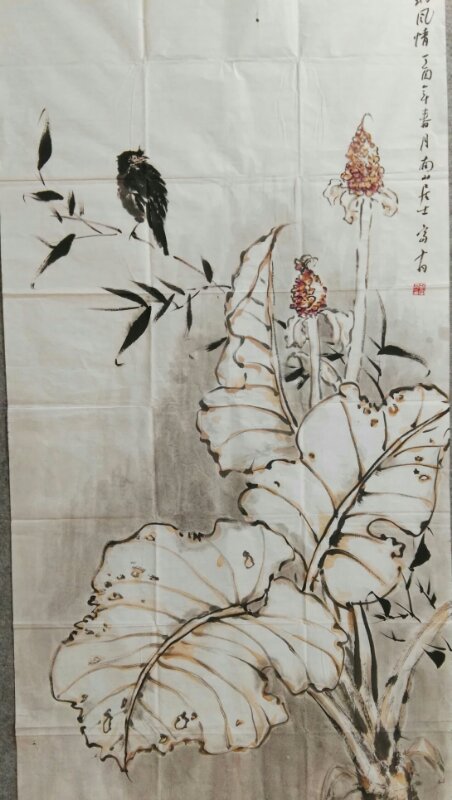 风情 丁酉年春月南山居士写于